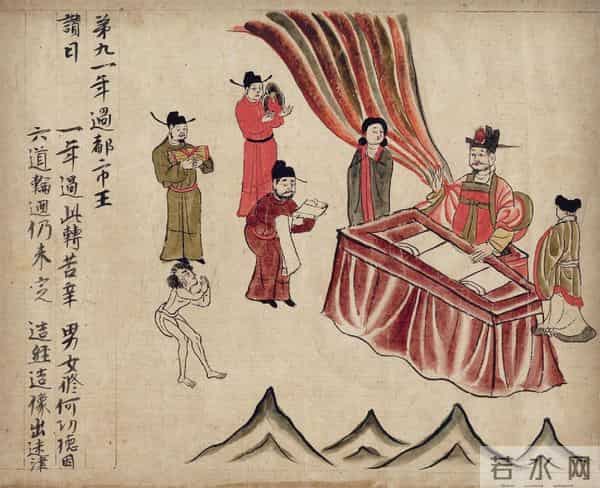 第九一年過都市王
讃曰
一年過此轉苦辛 男女修何功德因
六道輪迴仍未定 造經造像出迷津
若水网